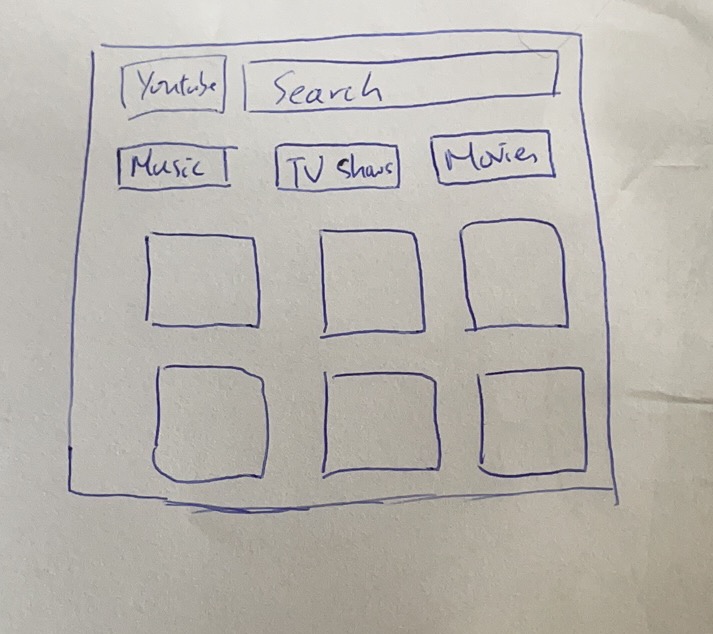 Youtube Search
Music TV Shows Movies